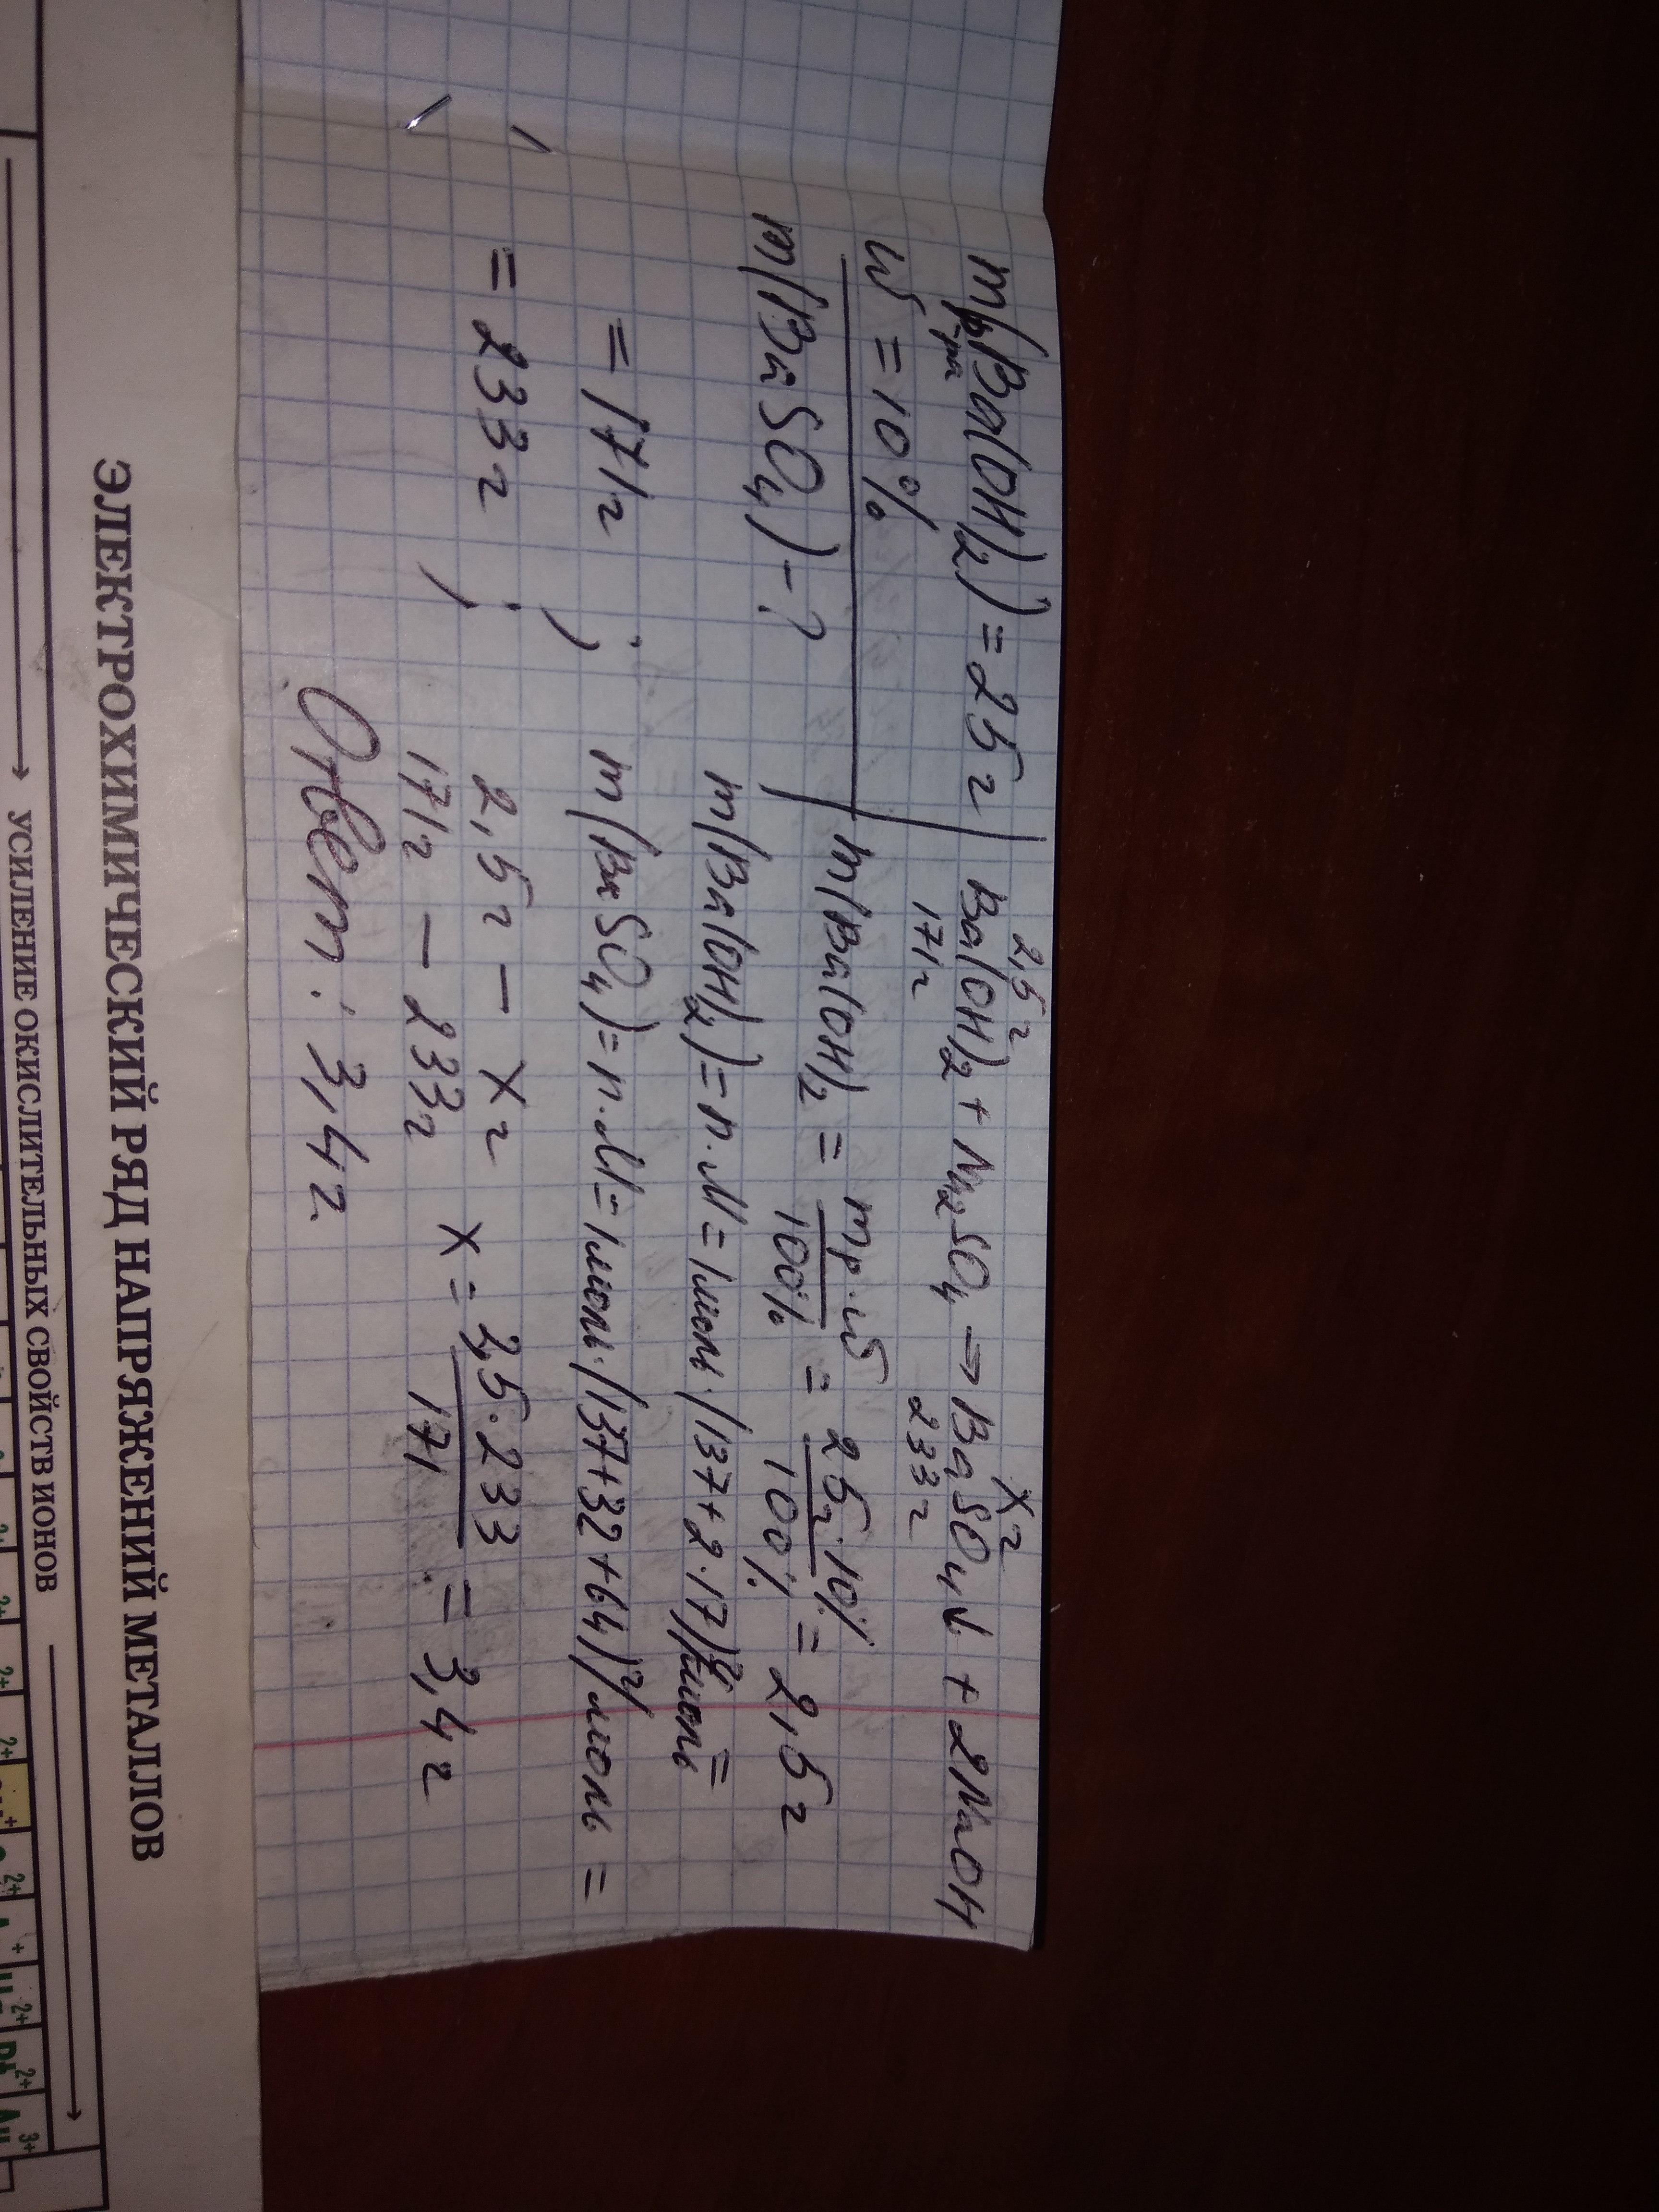 m р-ра (Ba(OH)2) = 25 г
w = 10%
m(BaSO4) - ?
2,5 г x г
Ba(OH)2 + Na2SO4 → BaSO4↓ + 2NaOH
171 г 233 г
m(Ba(OH)2 = mр·w / 100% = 25г·10% / 100% = 2,5 г
m(Ba(OH)2) = n·M = 1 моль·(137+2·17) г/моль =
= 171 г ;
m(BaSO4) = n·M = 1 моль·(137+32+64) г/моль =
= 233 г ;
2,5 г — x г
171 г — 233 г x = 2,5·233 / 171 = 3,4 г
Ответ: 3,4 г.
ЭЛЕКТРОХИМИЧЕСКИЙ РЯД НАПРЯЖЕНИЙ МЕТАЛЛОВ
УСИЛЕНИЕ ОКИСЛИТЕЛЬНЫХ СВОЙСТВ ИОНОВ